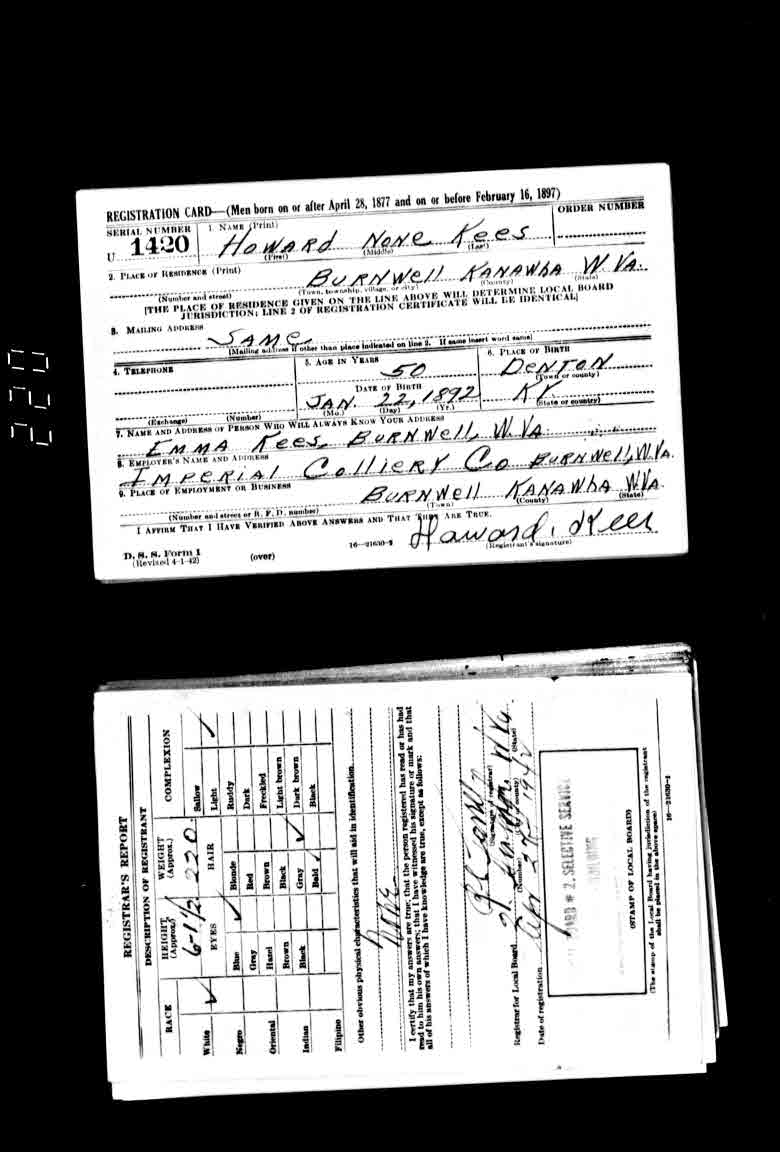 REGISTRATION CARD—(Men born on or after April 28, 1877 and on or before February 16, 1897)
SERIAL NUMBER
1. NAME (Print)
ORDER NUMBER
U 1420
HOWARD NONE KEES
(First) (Middle) (Last)
2. PLACE OF RESIDENCE (Print)
BURNWELL KANAWHA W. VA.
(Number and street) (Town, township, village, or city) (County) (State)
[THE PLACE OF RESIDENCE GIVEN ON THE LINE ABOVE WILL DETERMINE LOCAL BOARD
JURISDICTION; LINE 2 OF REGISTRATION CERTIFICATE WILL BE IDENTICAL]
3. MAILING ADDRESS
SAME
[Mailing address if other than place indicated on line 2. If same insert word same]
4. TELEPHONE
5. AGE IN YEARS
6. PLACE OF BIRTH
50
DENTON
(Town or county)
DATE OF BIRTH
JAN. 22, 1892
KY.
(Exchange) (Number)
(Mo.) (Day) (Yr.)
(State or country)
7. NAME AND ADDRESS OF PERSON WHO WILL ALWAYS KNOW YOUR ADDRESS
EMMA KEES, BURNWELL, W. VA.
8. EMPLOYER'S NAME AND ADDRESS
IMPERIAL COLLIERY CO BURNWELL, W. VA.
9. PLACE OF EMPLOYMENT OR BUSINESS
BURNWELL KANAWHA W. VA.
(Number and street or R. F. D. number) (Town) (County) (State)
I AFFIRM THAT I HAVE VERIFIED ABOVE ANSWERS AND THAT THEY ARE TRUE.
Howard Kees
D. S. S. Form 1
(Revised 4-1-42)
(over)
16—21630-2
(Registrant's signature)
220
REGISTRAR'S REPORT
DESCRIPTION OF REGISTRANT
RACE
HEIGHT (Approx.)
WEIGHT (Approx.)
COMPLEXION
6-1 1/2
220
White
EYES
HAIR
Sallow
Light
Negro
Blue
Blonde
Ruddy
Gray
Red
Dark
Oriental
Hazel
Brown
Freckled
Brown
Black
Light brown
Indian
Black
Gray
Dark brown
Bald
Black
Filipino
Other obvious physical characteristics that will aid in identification
None
I certify that my answers are true; that the person registered has read or has had
read to him his own answers; that I have witnessed his signature or mark and that
all of his answers of which I have knowledge are true, except as follows:
(Signature of registrar)
Registrar for Local Board
W. Va.
(Number) (City or county) (State)
Date of registration
Apr 27 1942
BOARD # 2, SELECTIVE SERVICE
(STAMP OF LOCAL BOARD)
(The stamp of the Local Board having jurisdiction of the registrant
shall be placed in the above space)
16—21630-1